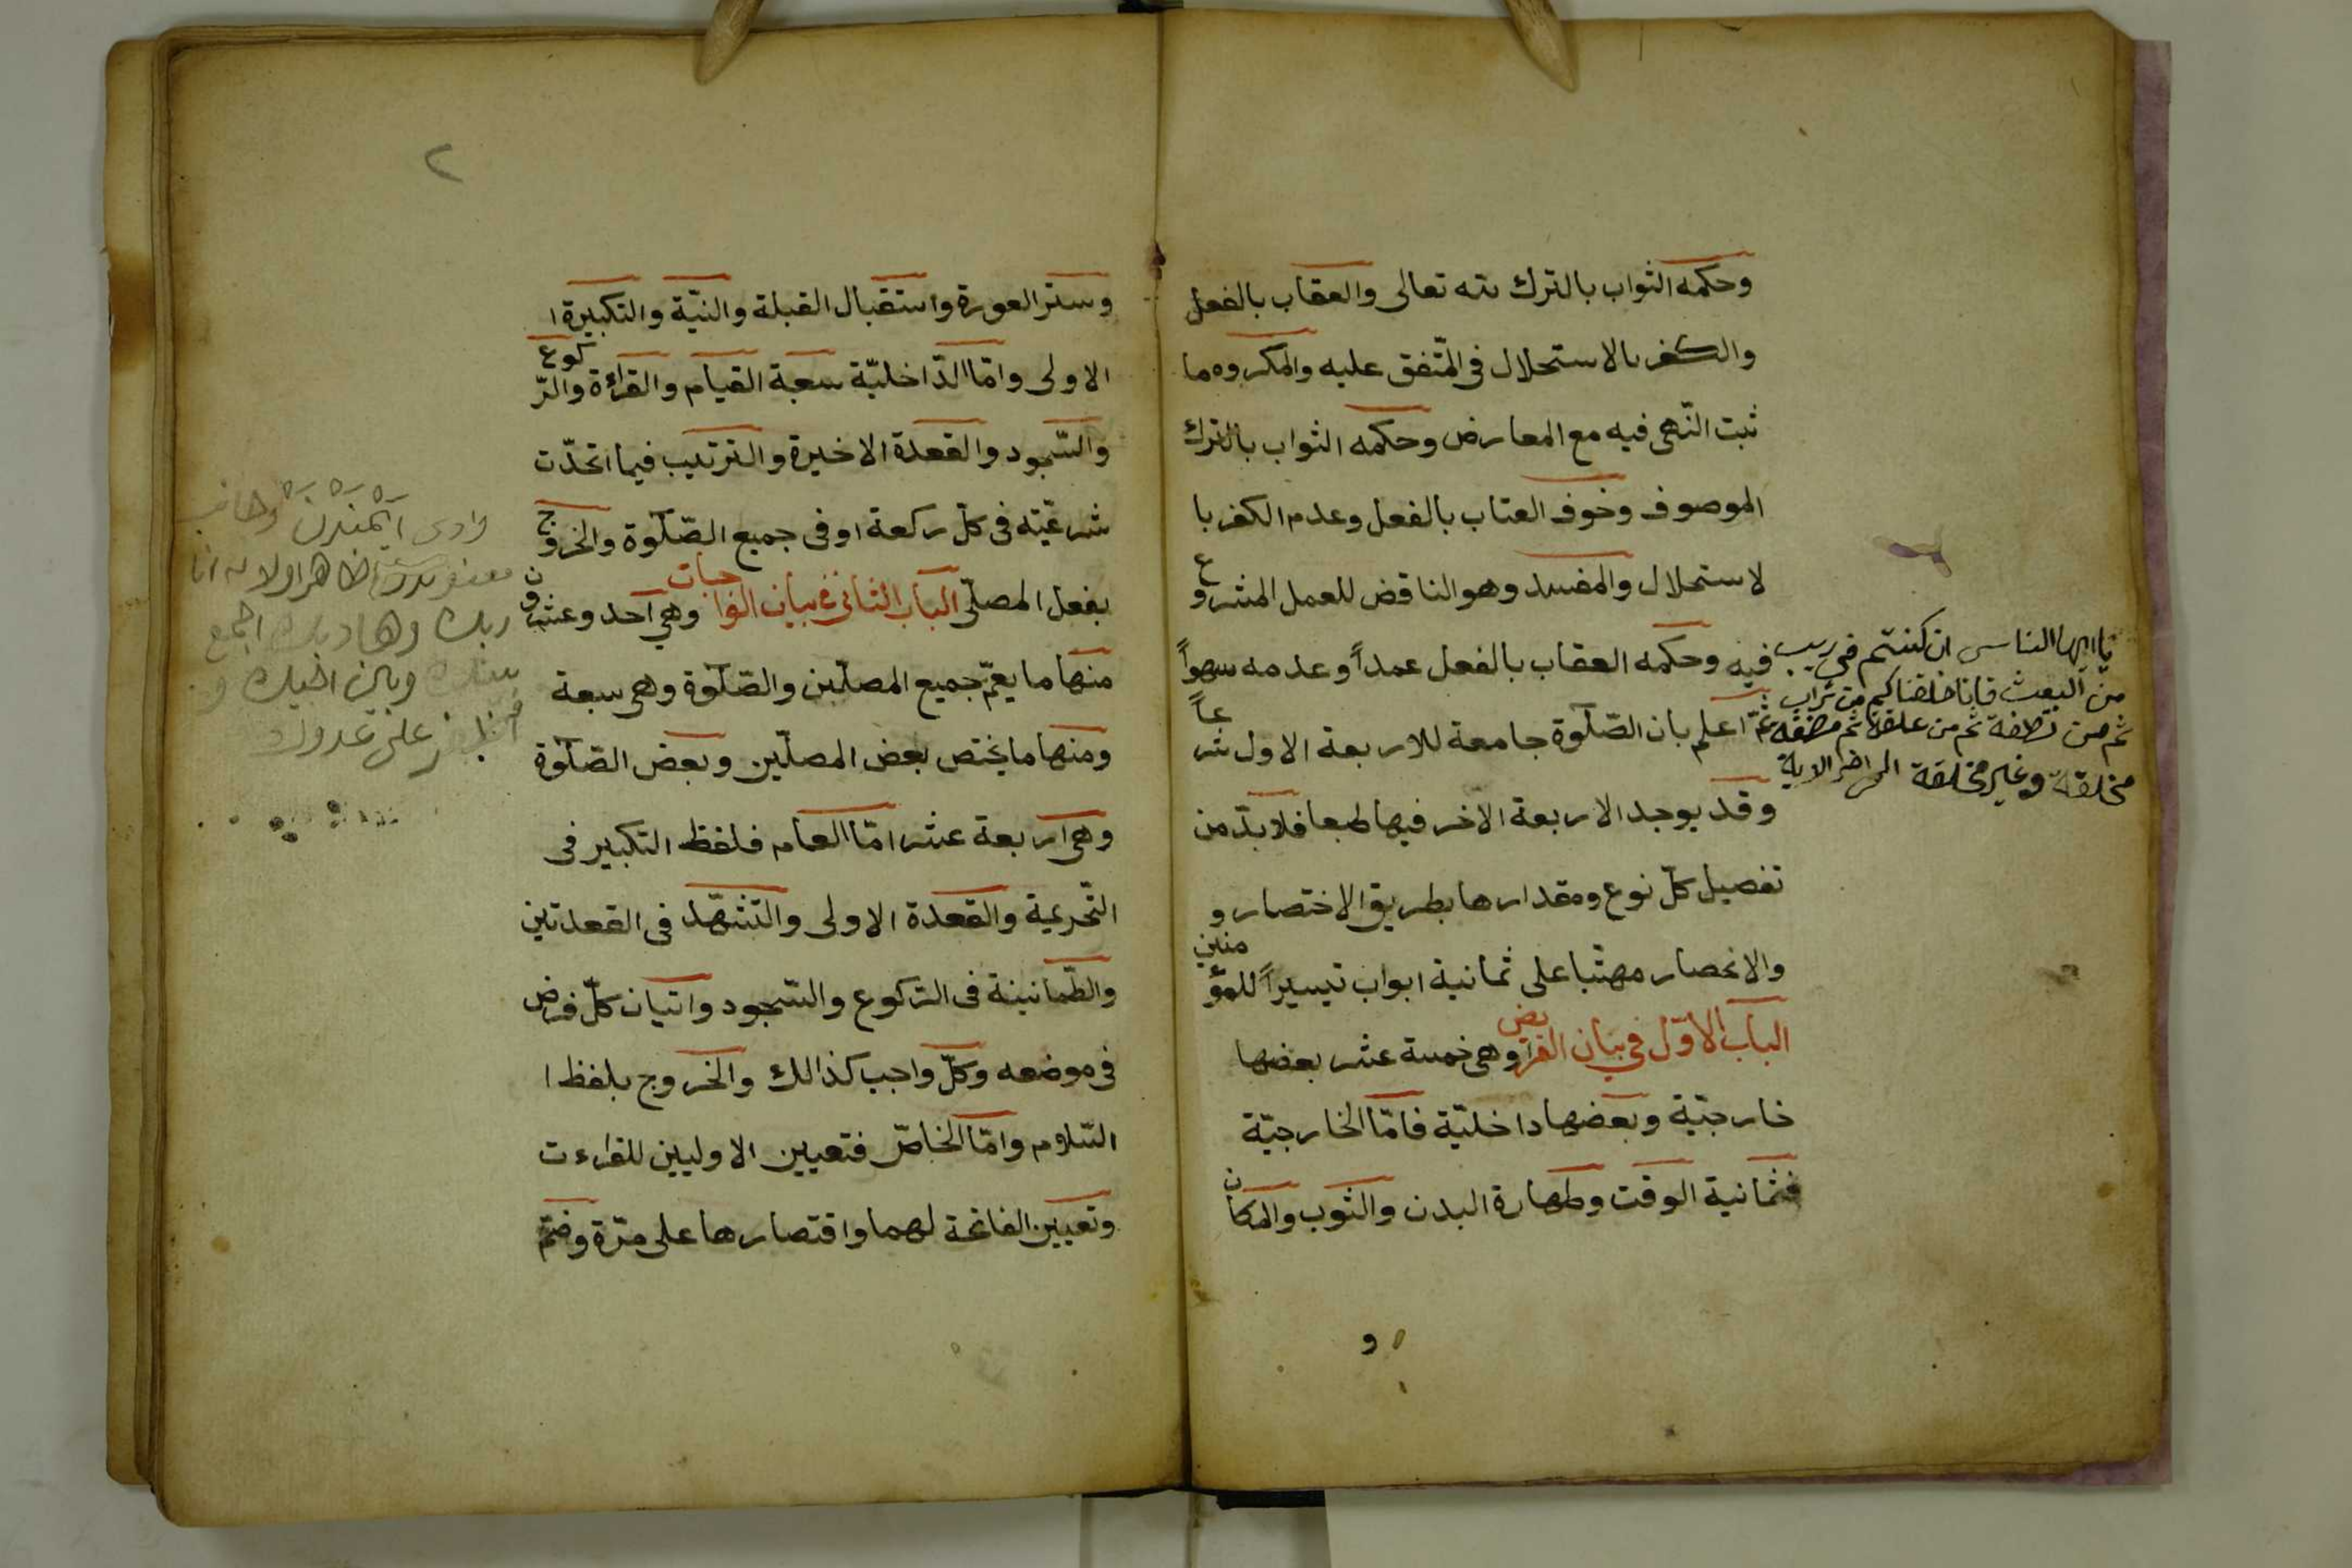 وحكمه الثواب بالترك لله تعالى والعقاب بالفعل
والكفر بالاستحلال فى المتّفق عليه والمكروه ما
ثبت النّهى فيه مع المعارض وحكمه الثواب بالترك
الموصوف وخوف العتاب بالفعل وعدم الكفر با
لاستحلال والمفسد وهو الناقض للعمل المشروع
فيه وحكمه العقاب بالفعل عمداً وعدمه سهواً
ثمّ اعلم بان الصّلوة جامعة للاربعة الاول شرعاً
وقد يوجد الاربعة الاخر فيها طبعا فلابدّ من
تفصيل كلّ نوع ومقدارها بطريق الاختصار و
والانحصار مرتّبا على ثمانية ابواب تيسيراً للمؤمنين
الباب الاوّل فى بيان الفرايض وهى خمسة عشر بعضها
خارجيّة وبعضها داخليّة فامّا الخارجيّة
فثمانية الوقت وطهارة البدن والثوب والمكان
يا ايها الناس ان كنتم فى ريب
من البعث فانا خلقناكم من تراب
ثم من نطفة ثم من علقة ثم مضغة
مخلقة وغير مخلقة الى اخر الاية
و
٢
وستر العورة واستقبال القبلة والنيّة والتكبيرة ا
الاولى وامّا الدّاخليّة سعبة القيام والقراءة والرّكوع
والسّجود والقعدة الاخيرة والترتيب فيما اتحدّت
شرعيّته فى كلّ ركعة او فى جميع الصّلوة والخروج
بفعل المصلّى الباب الثانى فى بيان الواجبات وهى احد وعشرون
منها ما يعمّ جميع المصلّين والصّلوة وهى سبعة
ومنها ما يختص بعض المصلّين وبعض الصّلوة
وهى اربعة عشر امّا العام فلفظ التكبير فى
التّحريمة والقعدة الاولى والتّشهّد فى القعدتين
والطّمانينة فى الرّكوع والسّجود واتيان كلّ فرض
فى موضعه وكلّ واجب كذالك والخروج بلفظ ا
السّلام وامّا الخاصّ فتعيين الاوليين للقراءت
وتعيين الفاتحة لهما واقتصارها على مرّة وضمّ
وادى ايمندن
ظاهر اولا انا
ربك وهاد اجمع
بينك وبين اخيك و
على عدوك